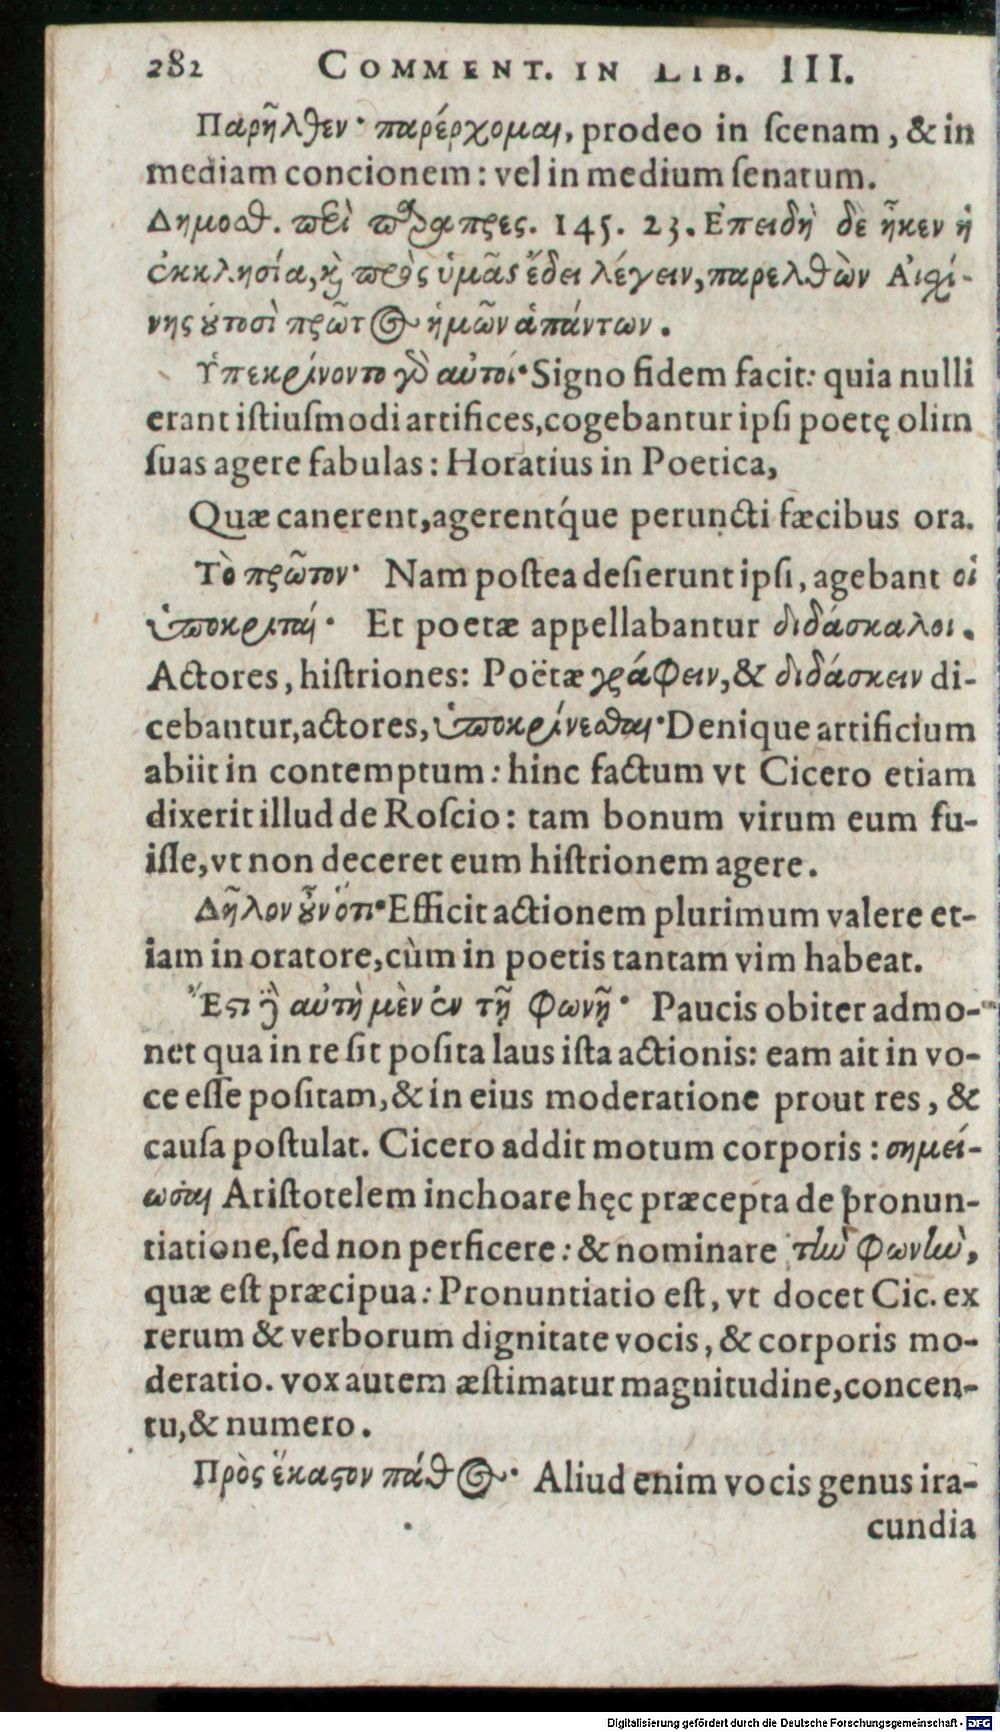 282 COMMENT. IN LIB. III.
Παρῆλθεν· παρέρχομαι, prodeo in ſcenam, & in
mediam concionem: vel in medium ſenatum.
Δημοσθ. περὶ παραπρες. 145. 23. Ἐπειδὴ δὲ ἧκεν ἡ
ἐκκλησία, καὶ πρὸς ὑμᾶς ἔδει λέγειν, παρελθὼν Αἰσχί-
νης οὑτοσὶ πρῶτος ἡμῶν ἁπάντων.
Ὑπεκρίνοντο γὰρ αὐτοί· Signo fidem facit: quia nulli
erant iſtiuſmodi artifices, cogebantur ipſi poetę olim
ſuas agere fabulas: Horatius in Poetica,
Quæ canerent, agerentq́ue peruncti fæcibus ora.
Τὸ πρῶτον· Nam poſtea deſierunt ipſi, agebant οἱ
ὑποκριταί· Et poetæ appellabantur διδάσκαλοι.
Actores, hiſtriones: Poëtæ γράφειν, & διδάσκειν di-
cebantur, actores, ὑποκρίνεσθαι· Denique artificium
abiit in contemptum: hinc factum vt Cicero etiam
dixerit illud de Roſcio: tam bonum virum eum fu-
iſſe, vt non deceret eum hiſtrionem agere.
Δῆλον οὖν ὅτι· Efficit actionem plurimum valere et-
iam in oratore, cùm in poetis tantam vim habeat.
Ἔστι δὲ αὐτὴ μὲν ἐν τῇ φωνῇ· Paucis obiter admo-
net qua in re ſit poſita laus iſta actionis: eam ait in vo-
ce eſſe poſitam, & in eius moderatione prout res, &
cauſa poſtulat. Cicero addit motum corporis: σημεί-
ωσαι Ariſtotelem inchoare hęc præcepta de pronun-
tiatione, ſed non perficere: & nominare τὴν φωνὴν,
quæ eſt præcipua: Pronuntiatio eſt, vt docet Cic. ex
rerum & verborum dignitate vocis, & corporis mo-
deratio. vox autem æſtimatur magnitudine, concen-
tu, & numero.
Πρὸς ἕκαστον πάθος· Aliud enim vocis genus ira-
cundia
Digitalisierung gefördert durch die Deutsche Forschungsgemeinschaft - DFG